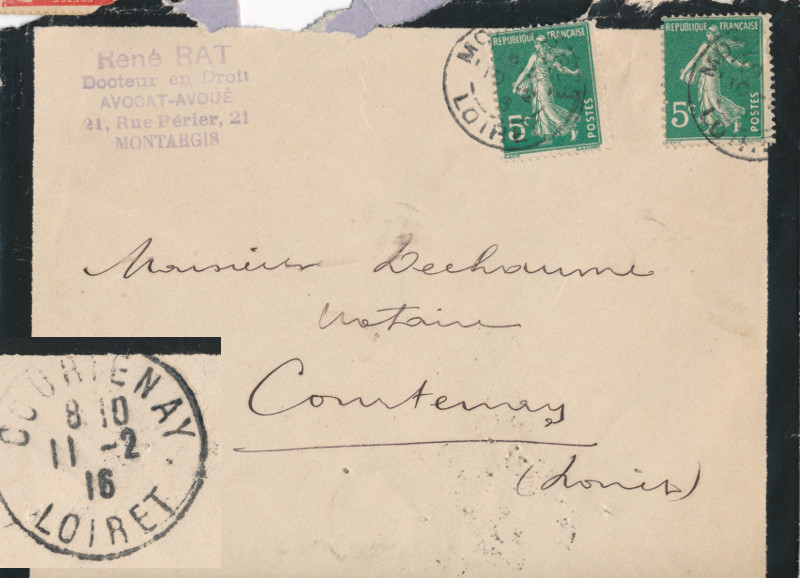 René RAT
Docteur en Droit
AVOCAT-AVOUÉ
21, Rue Périer, 21
MONTARGIS
REPUBLIQUE FRANÇAISE
5c
POSTES
LOIRET
REPUBLIQUE FRANÇAISE
5c
POSTES
Monsieur Dechaume
Notaire
Courtenay
(Loiret)
COURTENAY
8 10
11 -2
16
LOIRET